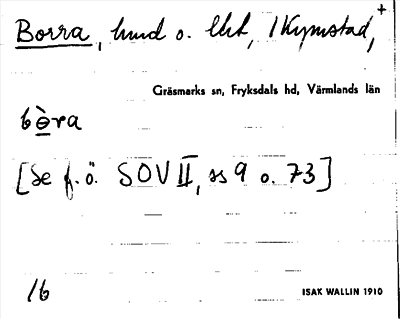 Borra, hmd o. lht, i Kymstad, +
Gräsmarks sn, Fryksdals hd, Värmlands län
bòra
[Se f.ö. SOV II, ss 9 o. 73]
16
ISAK WALLIN 1910